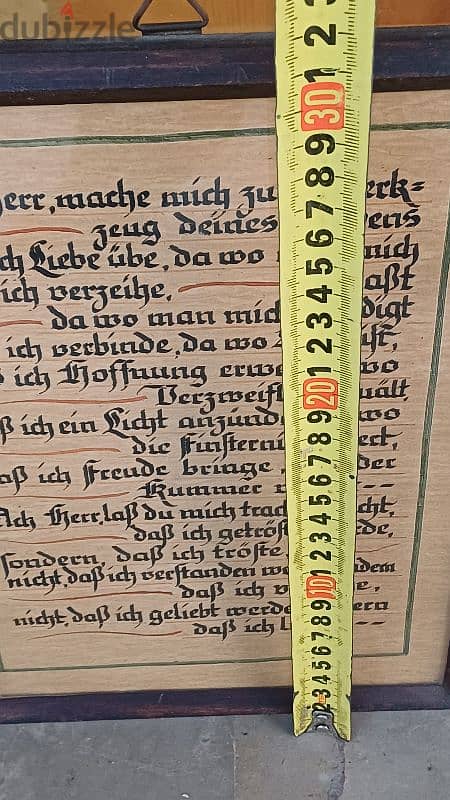 dubizzle
err, mache mich zu erk=
zeug deines ens
ch Liebe übe, da wo mich
ich verzeihe, aßt
da wo man mic digt
ich verbinde, da wo
ich Hoffnung erwe wo
Verzweifl uält,
ß ich ein Licht anzünd wo
die Finsterni
aß ich Freude bringe, der
Kummer
Ach Herr, laß du mich trac cht,
daß ich getrös de,
sondern, daß ich tröste
nicht, daß ich verstanden we dem
daß ich v e,
nicht, daß ich geliebt werde ern
daß ich l
3
2
1
30
9
8
7
6
5
4
3
2
1
20
9
8
7
6
5
4
3
2
1
10
9
8
7
6
5
4
3
2